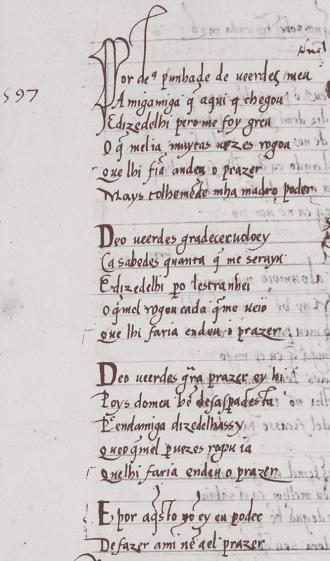 597
Por de9 punhade de ueerdes meu
Amigamiga q̄ aqui q̄ chegou
Edizedelhi pero me foy greu
O q̄ melia muytas uezes rogou
Que lhi fia andeu o prazer
Mays tolhemede mha madro poder
Deo ueerdes gradeceruoloey
Ca sabedes quanta q̄ me seruyu
Edizedelhi po lestranhei
O q̄mel rogou cada q̄me ueio
Que lhi faria endeu o prazer
Deo ueerdes gr̄a prazer ey hi
Poys domeu bē desasperdesta
Eendamiga dizedelhassy
Queo q̄mel puezes rogou ia
Quelhi faria endeu o prazer
E por aq̄sto nō ey eu poder
De fazer ami nē ael prazer